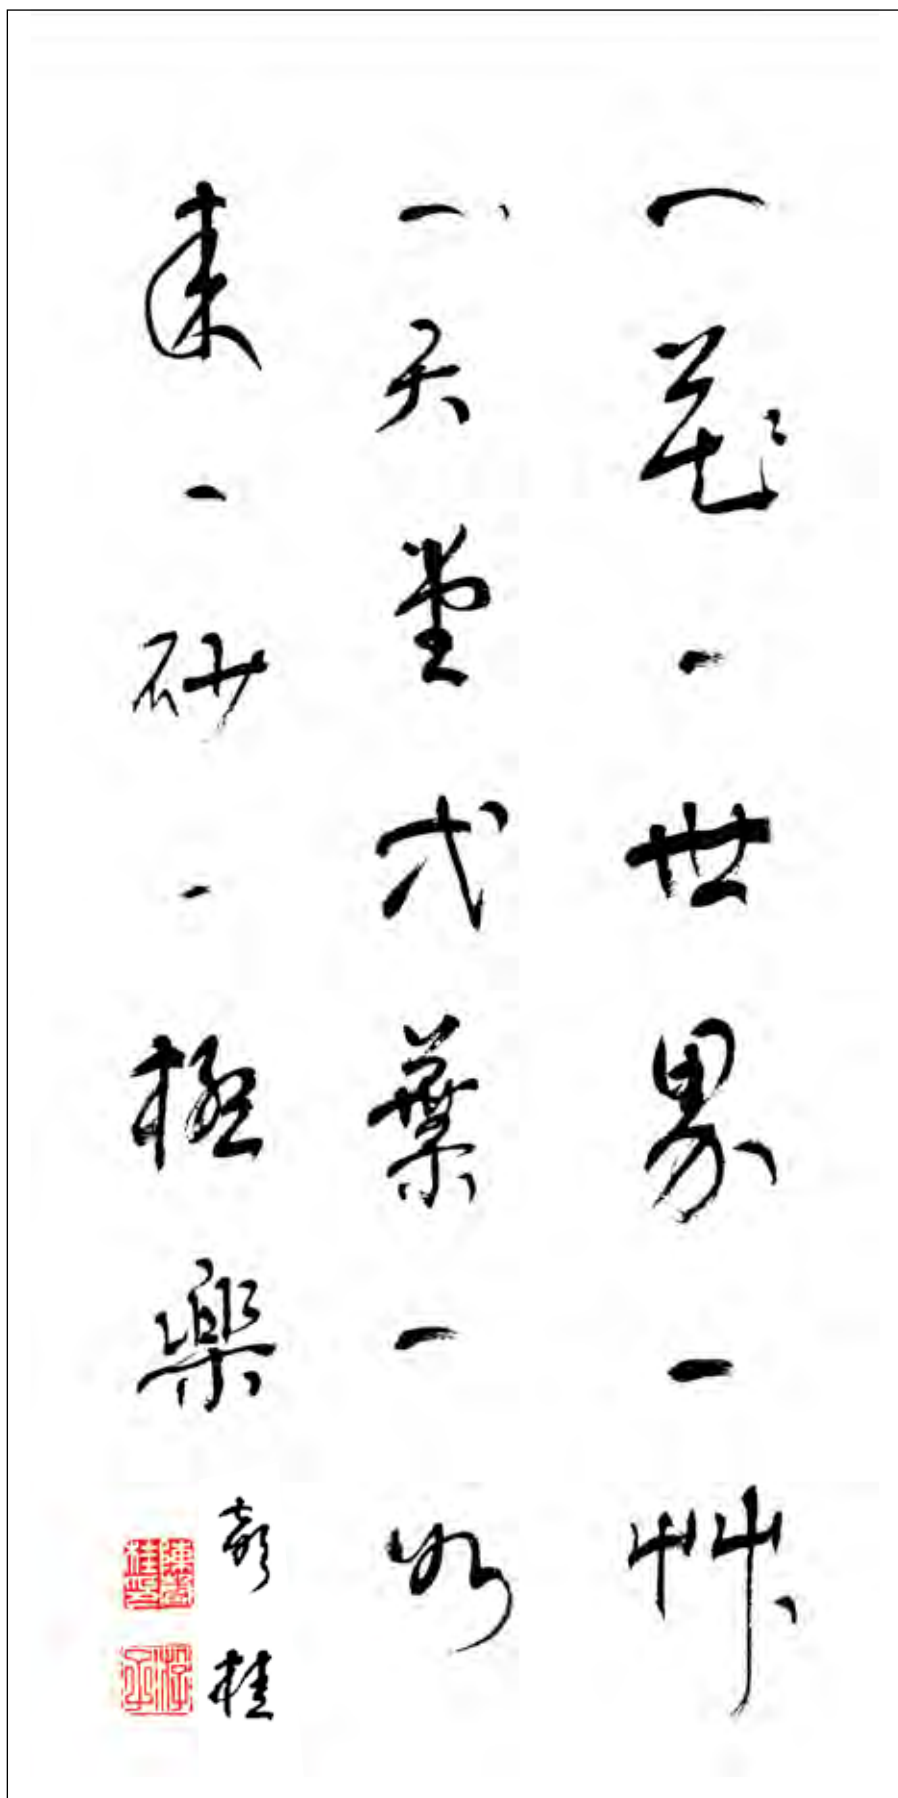 一花一世界一艸
一天堂弌葉一如
来一砂一極樂
彭桂